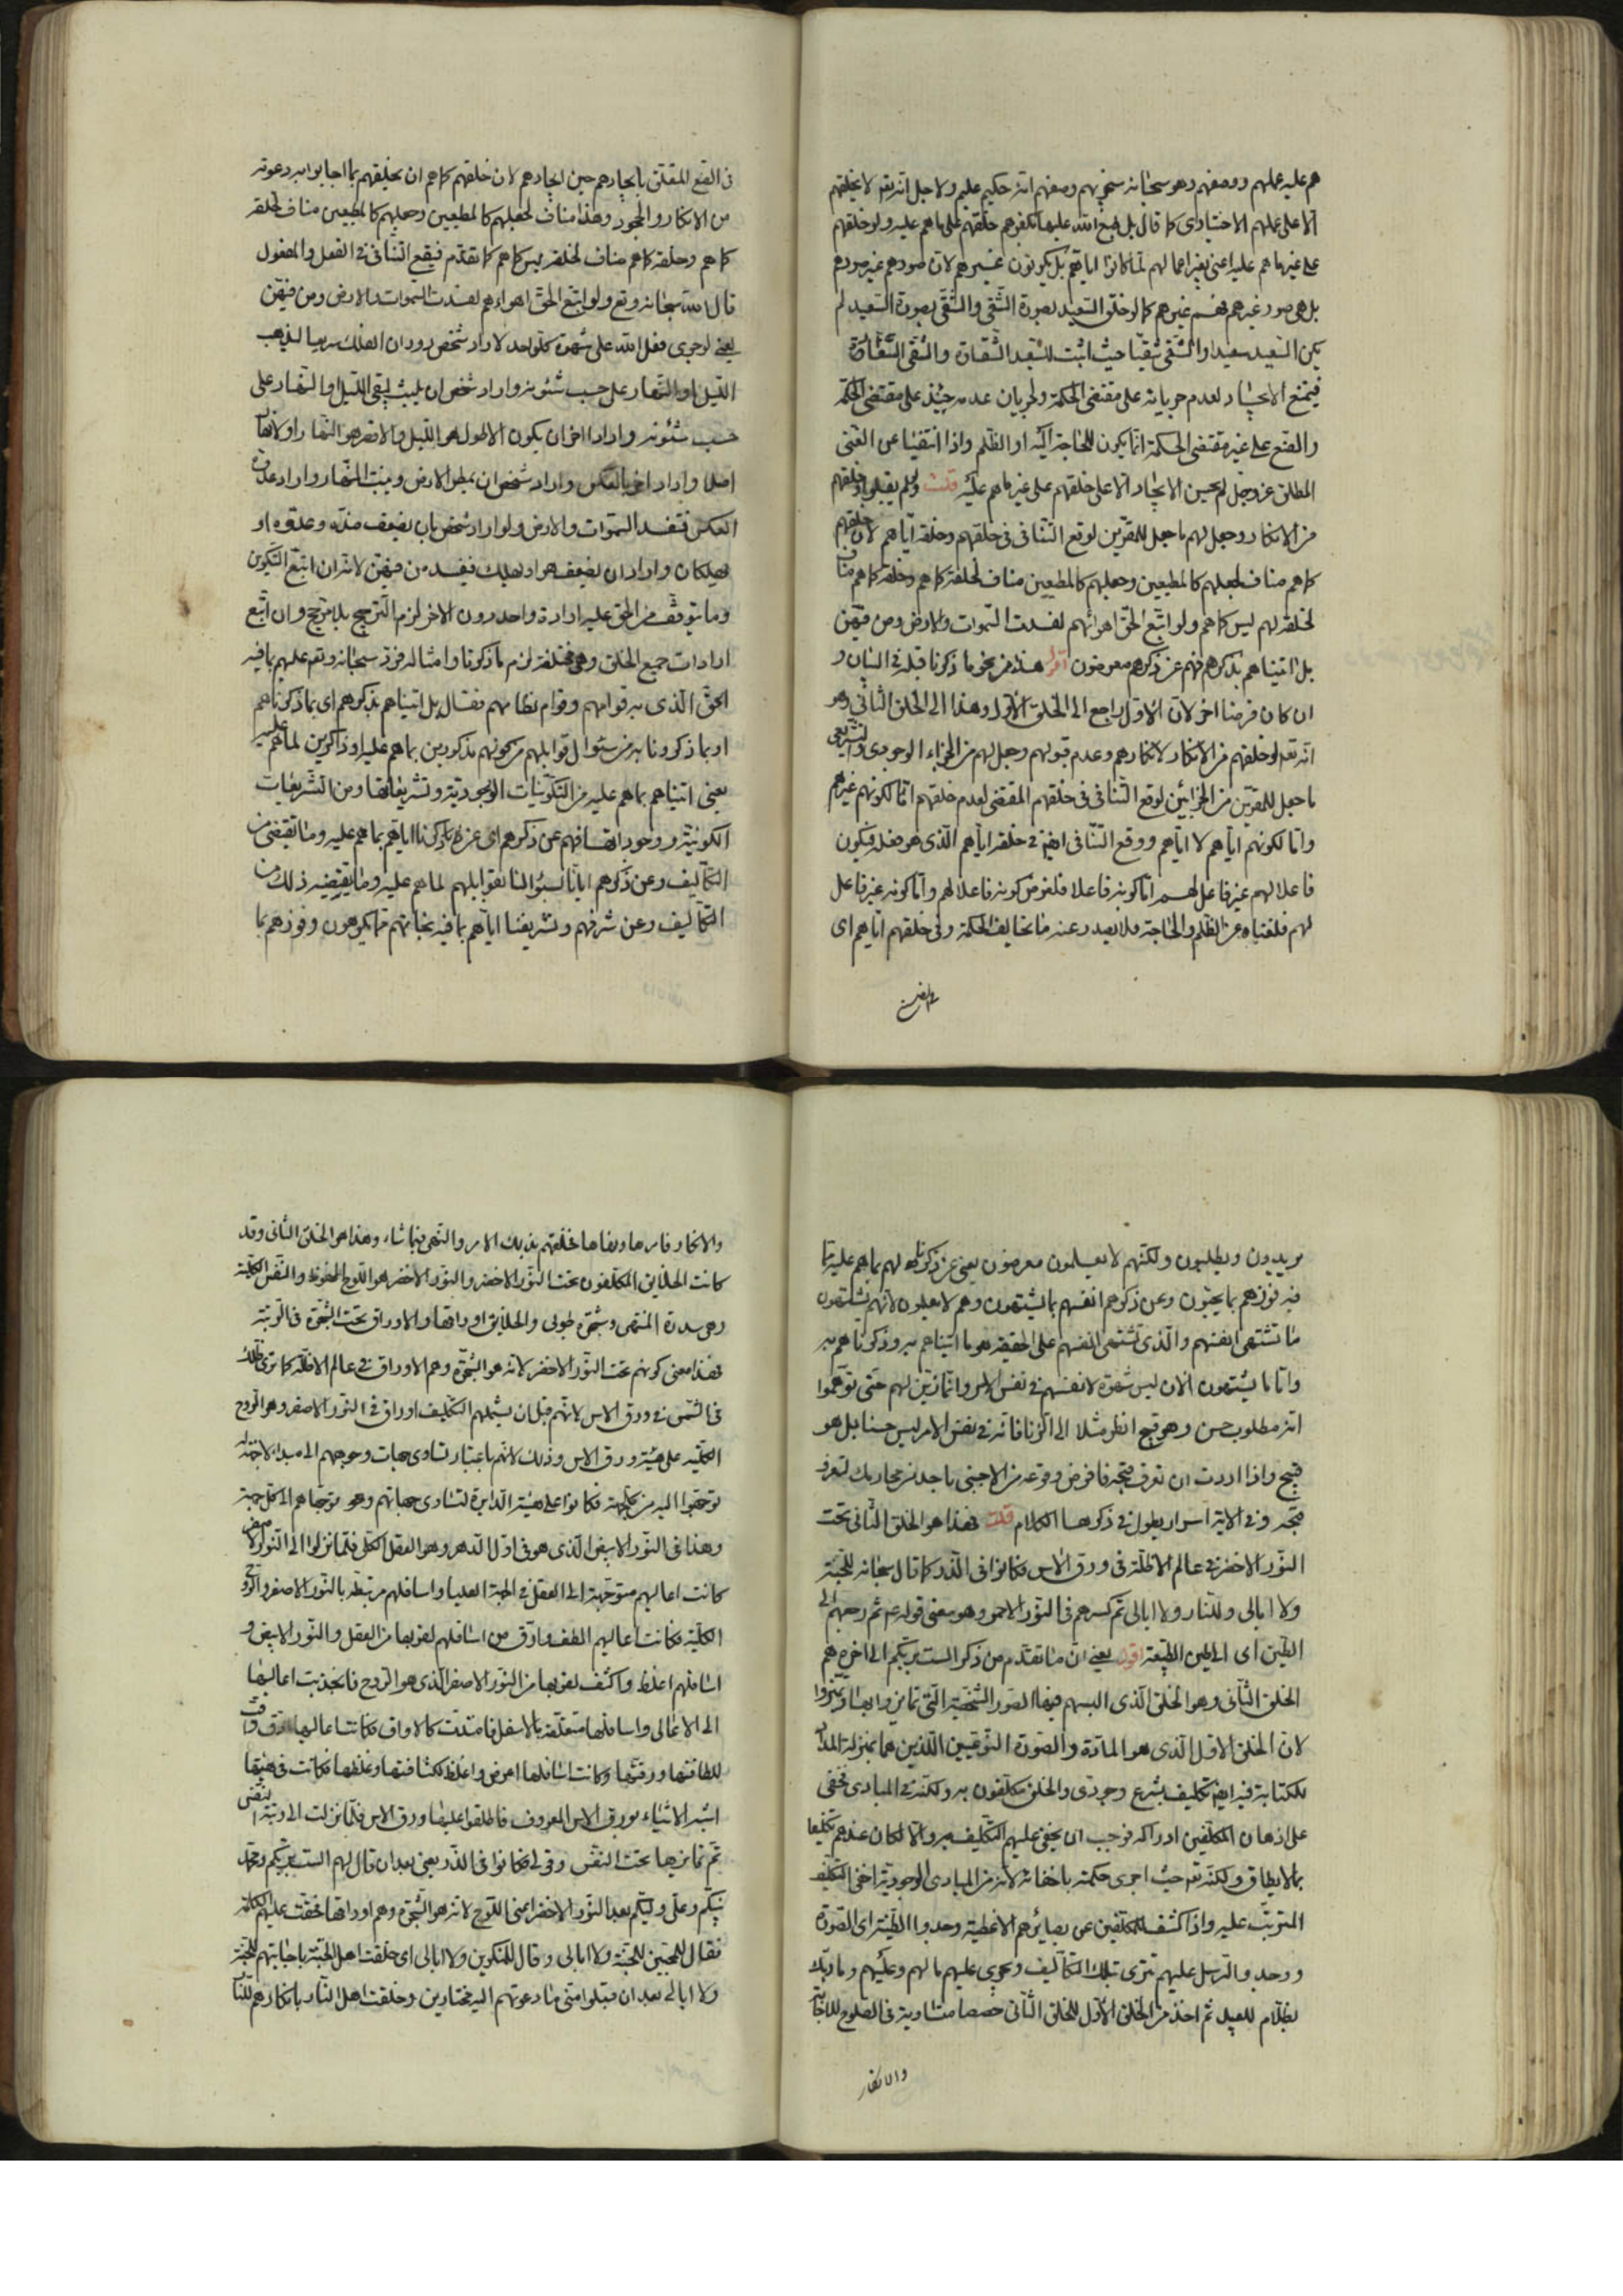 هم عليه عملهم ووصفهم وهو سبحانه سيجزيهم وصفهم انه حكيم عليم ولاجل انه تعالى لا يخلقهم
الا على عملهم الاختياري كما قال بل طبع الله عليها بكفرهم خلقهم على ما هم عليه ولو خلقهم
على غير ما هم عليه اعني بغير اعمالهم لما كانوا اياهم بل يكونون غيرهم لان صورهم غير صورهم
بل هي صور غيرهم فهم غيرهم كما لو خلق السعيد بصورة الشقي والشقي بصورة السعيد لم
يكن السعيد سعيدا والشقي شقيا حيث اثبت للسعيد الشقاوة والشقي السعادة
فيمتنع الايجاد لعدم جريانه على مقتضى الحكمة ولجريان عدمه حينئذ على مقتضى الحكمة
والصنع على غير مقتضى الحكمة انما يكون للحاجة اليه او الظلم واذا انتفيا عن الغني
المطلق عز وجل لم يحسن الايجاد الا على خلقهم على غير ما هم عليه قلت ولو لم يقبلوا وخلقهم
من الانكار وجعل لهم ما جعل للمقرين لوقع التنافي في خلقهم وخلقه اياهم لان خلقهم
كما هم مناف لجعلهم كالمطيعين وجعلهم كالمطيعين مناف لخلقه كما هم وخلقه كما هم مناف
لخلقه لهم ليس كما هم ولو اتبع الحق اهوائهم لفسدت السموات والارض ومن فيهن
بل اتيناهم بذكرهم فهم عن ذكرهم معرضون اقول هذا من نحو ما ذكرنا قبله في البيان و
ان كان فرضنا اخر لان الاول راجع الى الخلق الاول وهذا الى الخلق الثاني وهو
انه تعالى لو خلقهم من الانكار لانكارهم وعدم قبولهم وجعل لهم من الجزاء الوجودي والتشريعي
ما جعل للمقرين من الجزائين لوقع التنافي في خلقهم المقتضي لعدم خلقهم اما لكونهم غيرهم
واما لكونهم اياهم لا اياهم ووقع التنافي ايضا في خلقه اياهم الذي هو فعله فيكون
فاعلا لهم غير فاعل لهم اما كونه فاعلا فلفرض كونه فاعلا لهم واما كونه غير فاعل
لهم فلغناه عن الظلم والحاجة فلا يصدر عنه ما يخالف الحكمة وفي خلقهم اياهم اى
في الصنع
في الصنع المقلق بايجادهم حين ايجادهم لان خلقهم كما هم ان يخلقهم بما اجابوا به دعوته
من الانكار والجحود وهذا مناف لجعلهم كالمطيعين وجعلهم كالمطيعين مناف لخلقه
كما هم وخلقه كما هم مناف لخلقه ليس كما هم كما تقدم فيقع التنافي في الفعل والمفعول
قال الله سبحانه وتع ولو اتبع الحق اهوائهم لفسدت السموات والارض ومن فيهن
يعني لو جرى فعل الله على شهوة كل واحد لاراد شخص دوران الفلك سريعا ليذهب
الليل او النهار على حسب شئونه واراد شخص ان يلبث ليبقى الليل او النهار على
حسب شئونه واراد اخر ان يكون الاطول هو الليل والاقصر هو النهار او لا نهار
اصلا واراد اخر بالعكس واراد شخص ان يمطر الارض وينبت النهار واراد عدوه
العكس فتفسد السموات والارض ولو اراد شخص بان يضعف ضده وعدوه او
يهلكان واراد ان يضعف هو او يهلك فيفسد من فيهن لانه ان اتبع التكوين
وما يتوقف من الحق عليه ارادة واحد دون الاخر لزم الترجيح بلا مرجح وان اتبع
ارادات جميع الخلق وهي مختلفة لزم ما ذكرنا وامثاله فرد سبحانه وتع عليهم بما فيه
الحق الذي به قوامهم وقوام نظامهم فقال بل اتيناهم بذكرهم اى بما ذكرناهم
او بما ذكرونا به من سئوال قوابلهم من كونهم مذكورين بما هم عليه او ذاكرين لما هم عليه
يعني اتيناهم بما هم عليه من التكوينيات الوجودية وتشريعاتها ومن التشريعيات
الكونية ووجود اتصافهم عن ذكرهم اى عن ما ذكرنا اياهم بما هم عليه وما يقتضي من
التكاليف وعن ذكرهم ايانا بسئوالنا بقوابلهم لما هم عليه وما يقتضيه ذلك من
التكاليف وعن شرفهم وتشريفنا اياهم بما فيه نجاتهم مما يكرهون وفوزهم بما
يريدون ويطلبون ولكنهم لا يعلمون معرضون يعني عن ذكرنا لهم بما هم عليه مما
فيه فوزهم بما يحبون وعن ذكرهم انفسهم بما يشتهون وهم لا يعلمون لانهم يشتهون
ما تشتهى انفسهم والذي تشتهى انفسهم على الحقيقة هو ما اتيناهم به وذكرناهم به
واما ما يشتهون الان ليس شهوة لانفسهم في نفس الامر وانما زين لهم حتى توهموا
انه مطلوب حسن وهو قبيح انظر مثلا الى الزنا فانه في نفس الامر ليس حسنا بل هو
قبيح واذا اردت ان تعرف قبحه فافرض وقوعه من الاجنبي باحد من محارمك لتعرف
قبحه وفي الاية اسرار يطول في ذكرها الكلام قلت فهذا هو الخلق الثاني تحت
النور الاخضر في عالم الاظلة في ورق الاس فكانوا في الذر كما قال سبحانه للجنة
ولا ابالي وللنار ولا ابالي ثم كسرهم في النور الاحمر وهو معنى قوله ثم رجعهم الى
الطين اى الى طين الطبيعة اقول يعني ان ما تقدم من ذكر الست بربكم الى اخره هم
الخلق الثاني وهو الخلق الذي البسهم فيها الصور الشخصية التي تمايزوا بها وتميزوا
لان الخلق الاول الذي هو المادة والصورة النوعيين اللذين هما بمنزلة المداد
للكتابة فيه ايضا تكليف بشرع وجودي والخلق مكلفون به ولكنه في المبادي تخفى
على اذهان المكلفين ادراكه فوجب ان يخفى عليهم التكليف به والا لكان عندهم تكليفا
بما لا يطاق ولكنه تعالى حيث اجرى حكمته باخفائه لانه من المبادي الوجودية اخفى التكليف
المترتب عليه واذا كشف للمكلفين عن بصائرهم الاغطية وجدوا الطينة اى الصورة
ووجدوا الرسل عليهم تترى بتلك التكاليف وتجري عليهم ما لهم وعليهم وما ربك
بظلام للعبيد ثم اخذ من الخلق الاول للخلق الثاني حصصا متساوية في الصلوح للاجابة
والانكار
والانكار فامرها ونهاها فخلقهم بذلك الامر والنهى فيما شاء وهذا هو الخلق الثاني وقد
كانت الخلايق المكلفون تحت النور الاخضر والنور الاخضر هو اللوح المحفوظ والنفس الكلية
وهي سدرة المنتهى وشجرة طوبى والخلايق اوراقها والاوراق تحت الشجرة في الرتبة
فهذا معنى كونهم تحت النور الاخضر لانه هو الشجرة وهم الاوراق في عالم الاظلة كما ترى ظلك
في الشمس في ورق الاس لانهم قبل ان يشملهم التكليف اوراق في النور الاصفر وهو الروح
الكلية على هيئة ورق الاس وذلك لانهم باعتبار تساوي جهات وجوههم الى مبدائهم لانه
توجهوا اليه من كل جهة فكانوا على هيئة الدايرة لتساوى جهاتهم وهو توجهاهم الى كل جهة
وهذا في النور الابيض الذي هو في اول الدهر وهو العقل الكلي فلما نزلوا الى النور الاصفر
كانت اعاليهم متوجهة الى العقل في الجهة العليا واسافلهم مرتبطة بالنور الاصفر والروح
الكلية فكانت اعاليهم الطف وادق من اسافلهم لقربها من العقل والنور الابيض و
اسافلهم اغلظ واكثف لقربها من النور الاصفر الذي هو الروح فانجذبت اعاليها
الى الاعالى واسافلها متعلقة بالاسفل فامتدت كالاوراق فكانت اعاليها ادق وارق
للطافتها ورقتها وكانت اسافلها اعرض واغلظ لكثافتها وغلظها فكانت في هيئتها
اشبه الاشياء بورق الاس المعروف فاطلقوا عليها ورق الاس فلما نزلت الى رتبة النفس
تم تمايزها تحت النفس وقولى فكانوا في الذر يعني بعد ان قال لهم الست بربكم ومحمد
نبيكم وعلى وليكم بعد النور الاخضر اعني اللوح لانه هو الشجرة وهم اوراقها حقت عليهم الكلمة
فقال للمجيبين للجنة ولا ابالي وقال للمنكرين ولا ابالي اى خلقت اهل الجنة باجابتهم للجنة
ولا ابالي بعد ان قبلوا مني ما دعوتهم اليه مختارين وخلقت اهل النار بانكارهم للنار